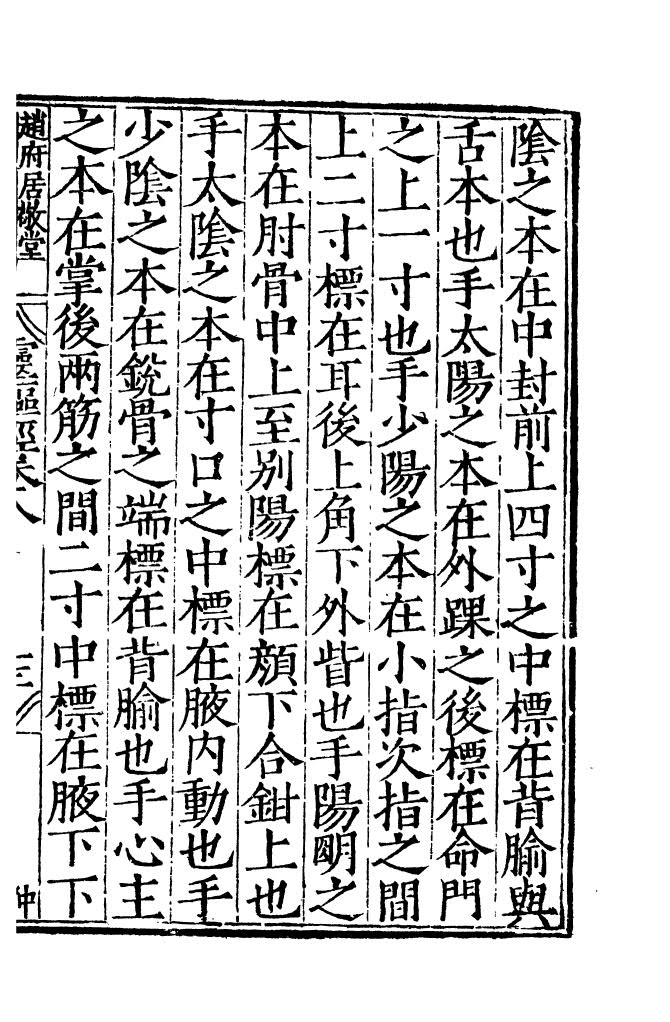 陰之本在中封前上四寸之中標在背腧與
舌本也手太陽之本在外踝之後標在命門
之上一寸也手少陽之本在小指次指之間
上二寸標在耳後上角下外眥也手陽明之
本在肘骨中上至别陽標在顏下合鉗上也
手太陰之本在寸口之中標在腋内動也手
少陰之本在銳骨之端標在背腧也手心主
之本在掌後兩筋之間二寸中標在腋下下
趙府居敬堂
靈樞經卷八
三
仲